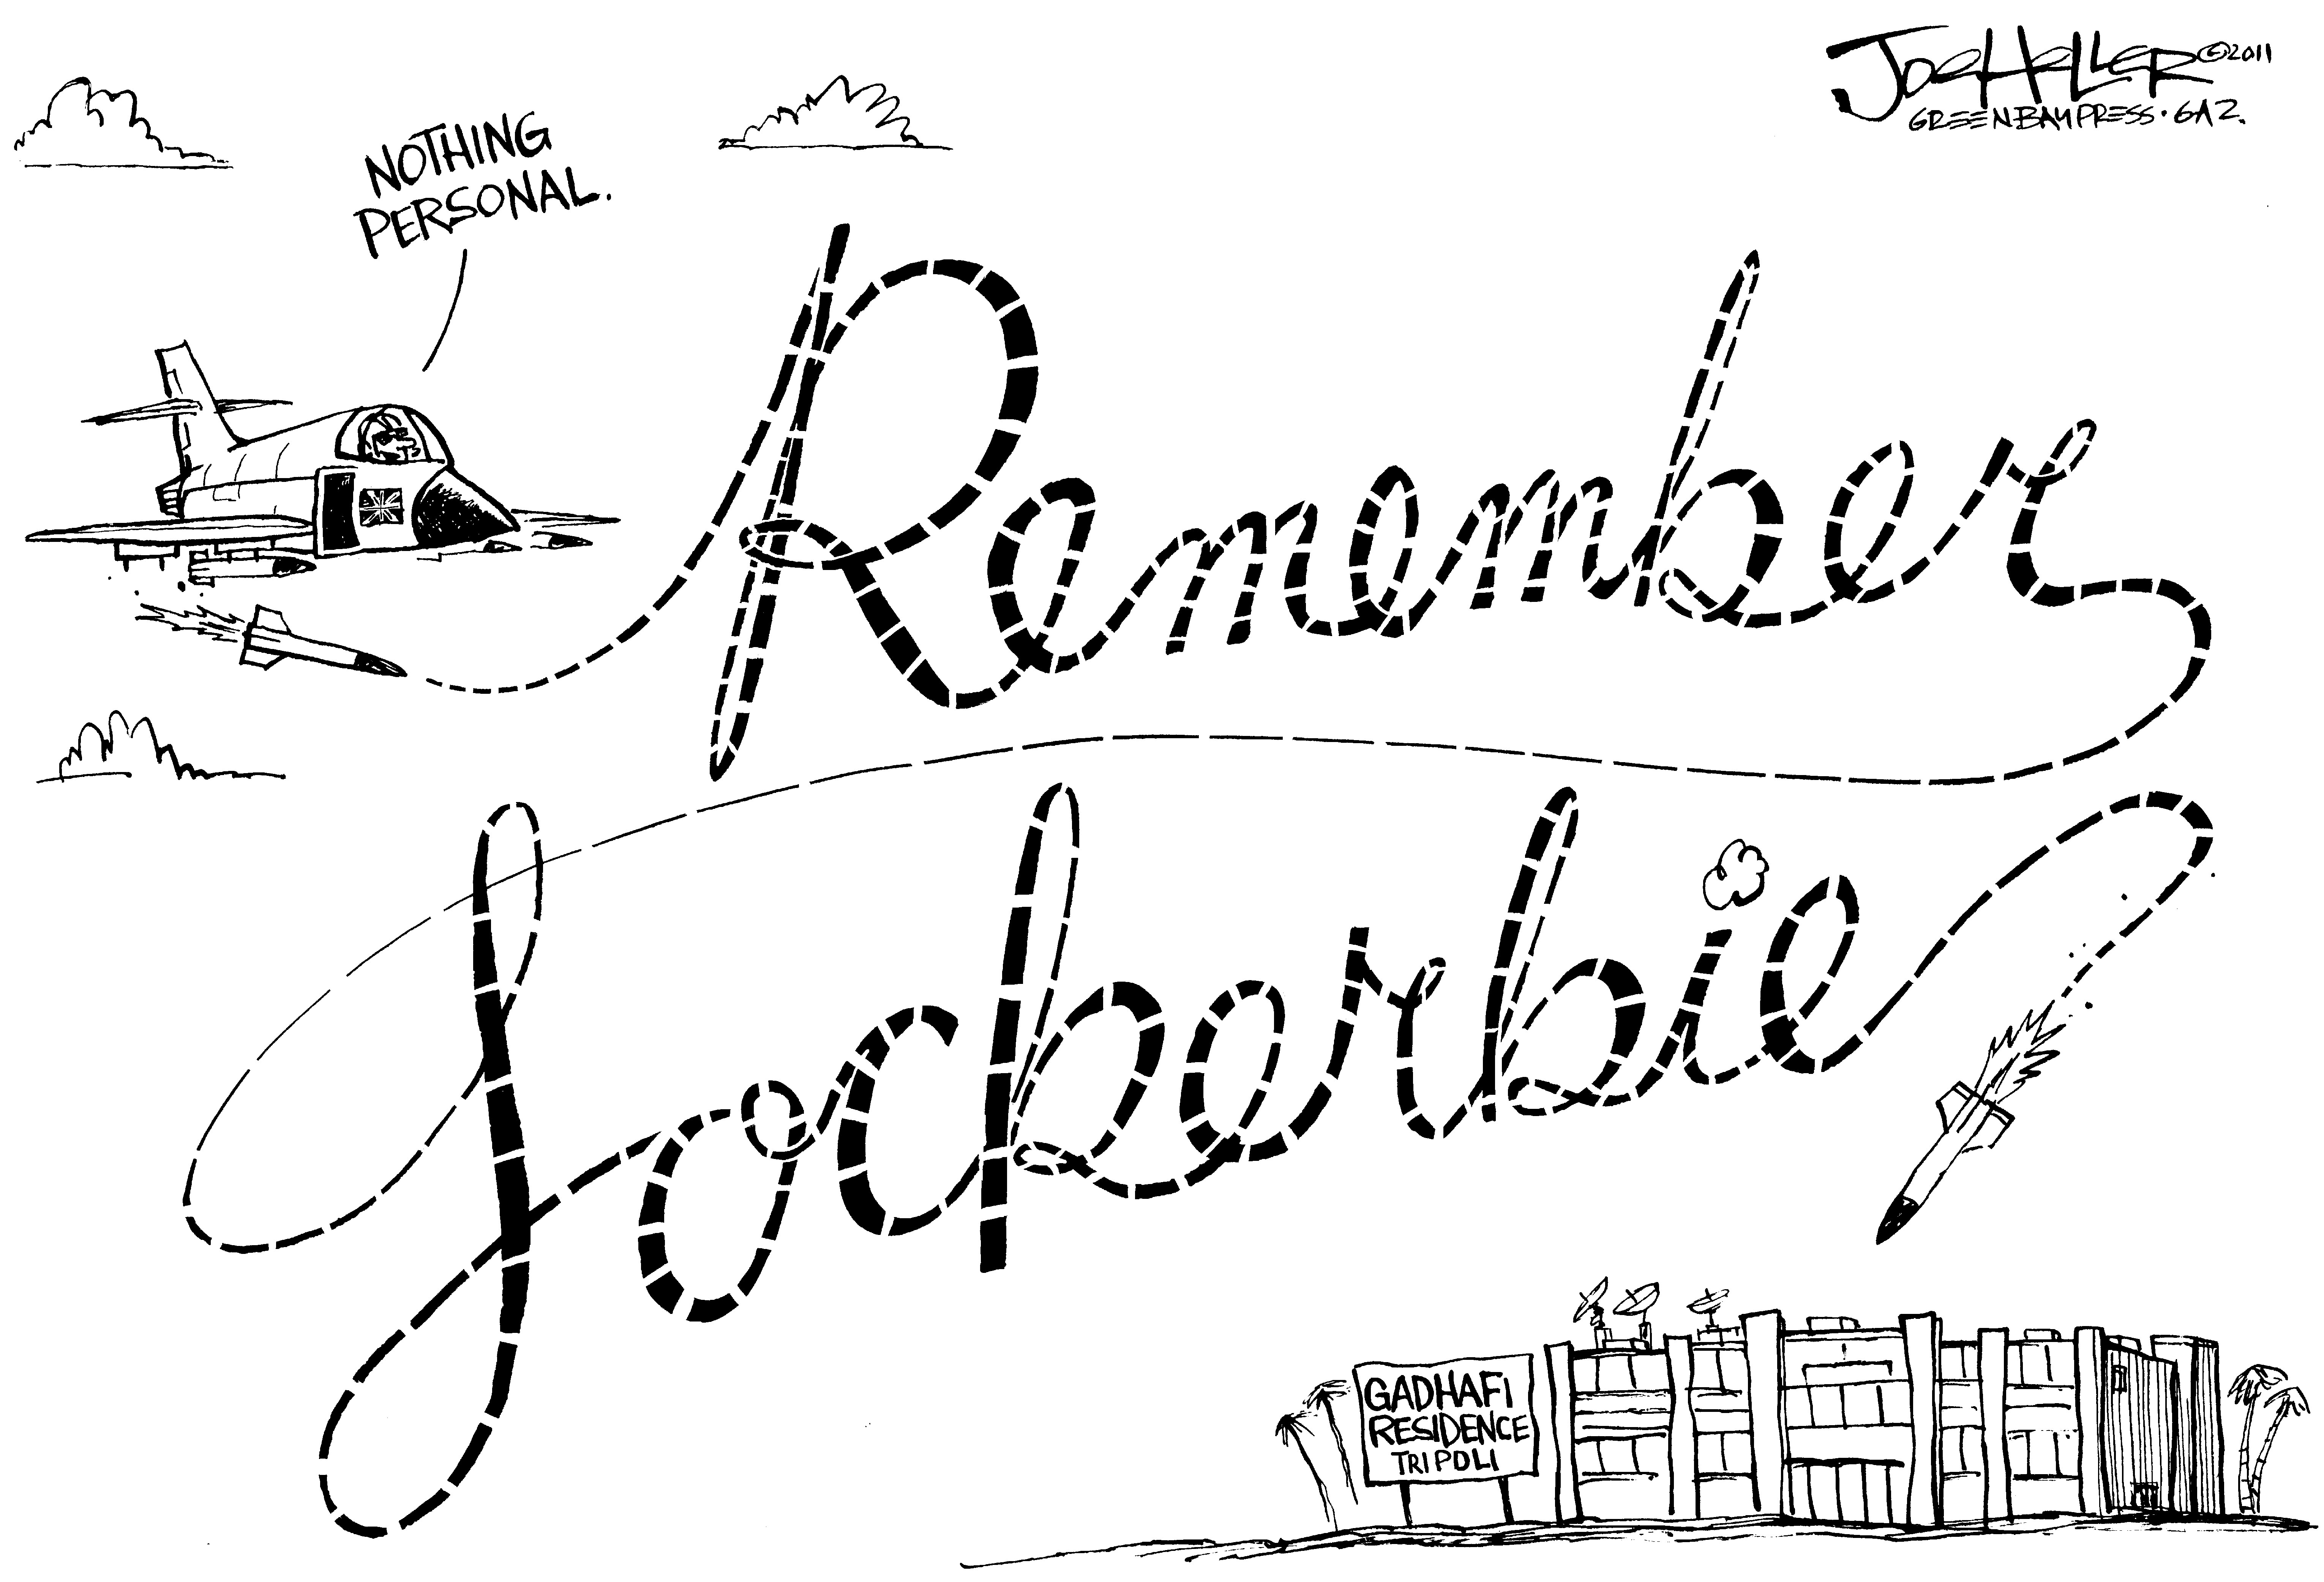 JOE HELLER ©2011
GREEN BAY PRESS·GAZ.
NOTHING
PERSONAL.
Remember
Lockerbie
GADHAFI
RESIDENCE
TRIPOLI